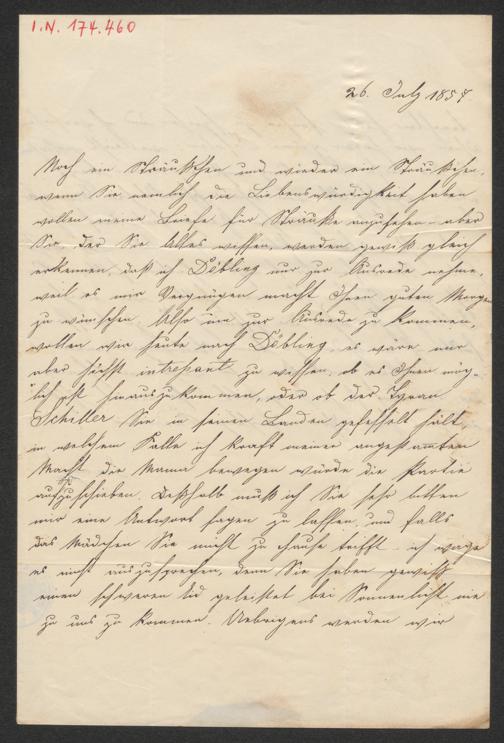 I.N. 174.460
26. July 1857
Noch ein Sträußchen und wieder ein Sträußchen,
wenn Sie nemlich die Liebenswürdigkeit haben
wollen meine Briefe für Sträuße anzusehen – aber
Sie, der Sie Alles wissen, werden gewiß gleich
erkennen, daß ich Döbling nur zur Ausrede nehme,
weil es mir Vergnügen macht Ihnen guten Morgen
zu wünschen. Also um zur Ausrede zu kommen,
wollen wir heute nach Döbling, es wäre mir
aber höchst intressant zu wissen, ob es Ihnen mög-
lich ist hinauszukommen, oder ob der Tyran
Schiller Sie in seinen Banden gefesselt hält,
in welchem Falle ich kraft meiner angestammten
Macht die Mama bewegen würde die Partie
aufzuschieben. Deßhalb muß ich Sie sehr bitten
mir eine Antwort sagen zu lassen, und falls
das Mädchen Sie nicht zu Hause trifft – ich wage
es nicht auszusprechen, denn Sie haben gewiß
einen schweren Eid geleistet bei Sonnenlicht nie
zu uns zu kommen. Uebrigens werden wir